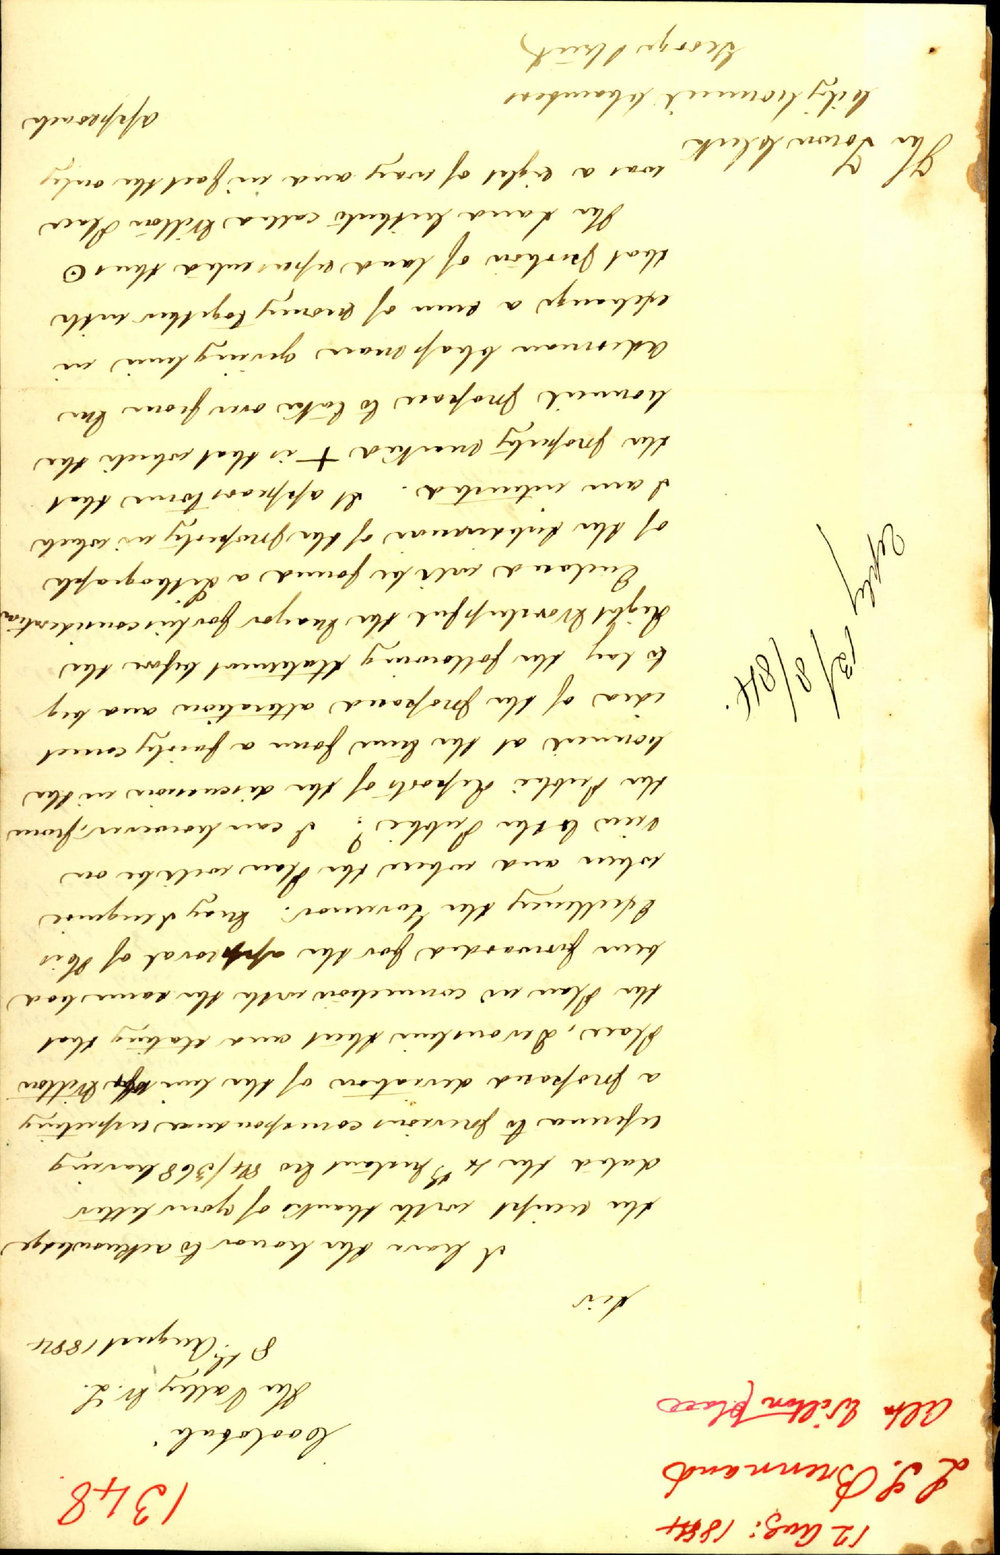 1348
12 Aug: 1884
L. S. Brennand
Altn Wilton place
The Valley W. L.
8th August 1884
Sir
I have the honor to acknowledge
the receipt with thanks of your letter
dated the 4th Instant No 84/368 having
reference to previous correspondence respecting
a proposed deviation of the line of Wilton
Place, Devonshire Street and stating that
the Plan in connection with the same had
been forwarded for the approval of His
Excellency the Governor. May I enquire
when and where the Plan will be on
view to the Public? I can however, from
the Public Reports of the discussion in the
Council at the time form a fairly correct
idea of the proposed alteration and beg
to lay the following statement before the
Right Worshipful the Mayor for his consideration
Enclosed will be found a Lithograph
of the Subdivision of the property in which
I am interested. It appears to me that
the property marked + is that which the
Council propose to take over from Mr
Alderman Chapman giving him in
exchange a sum of money together with
that portion of land represented thus ⊙
The Land hitherto called Wilton Place
was a right of way and in fact the only
approach
The Town Clerk
City Council Chambers
George Street
Reply 13/8/84.